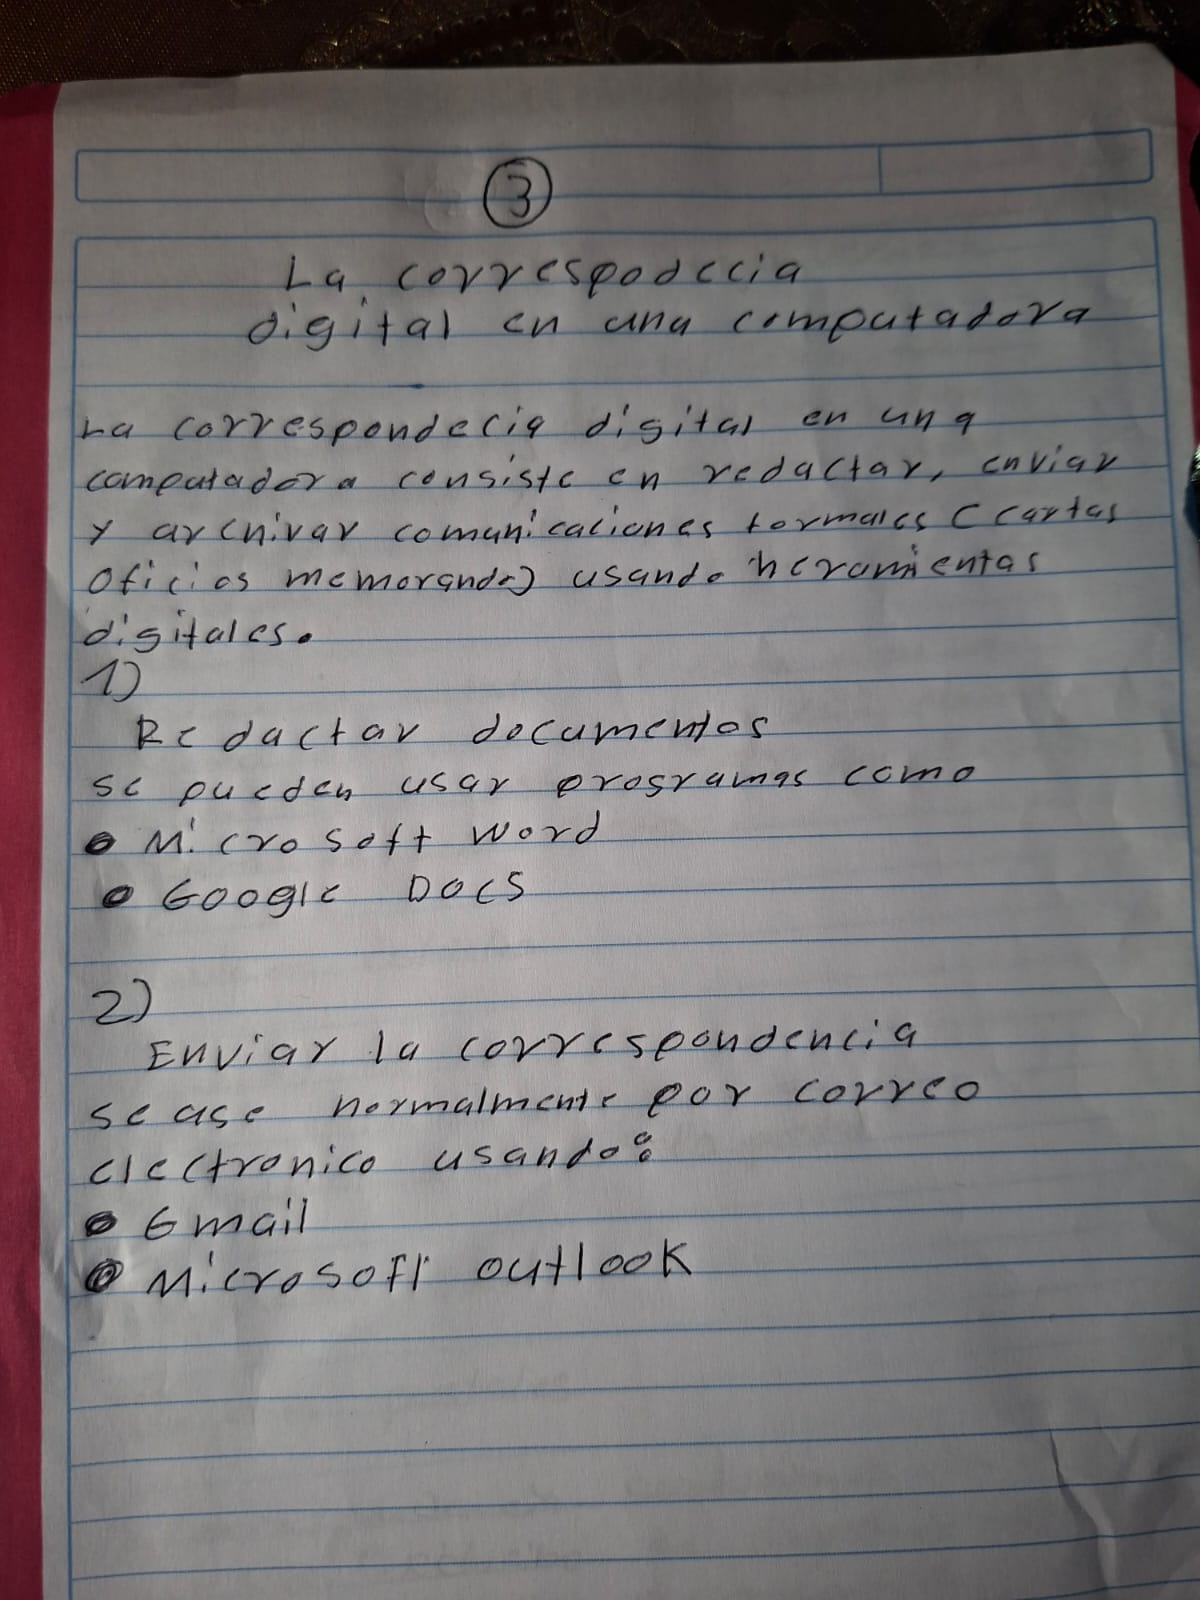 3
La correspodecia
digital en una computadora
La correspondecia digital en una
computadora consiste en redactar, enviar
y archivar comunicaciones formales (cartas
oficios memorando) usando heramientas
digitales.
1)
Redactar documentos
se pueden usar programas como
• Microsoft word
• Google Docs
2)
Enviar la correspondencia
se ase normalmente por correo
electronico usando:
• Gmail
• Microsoft outlook